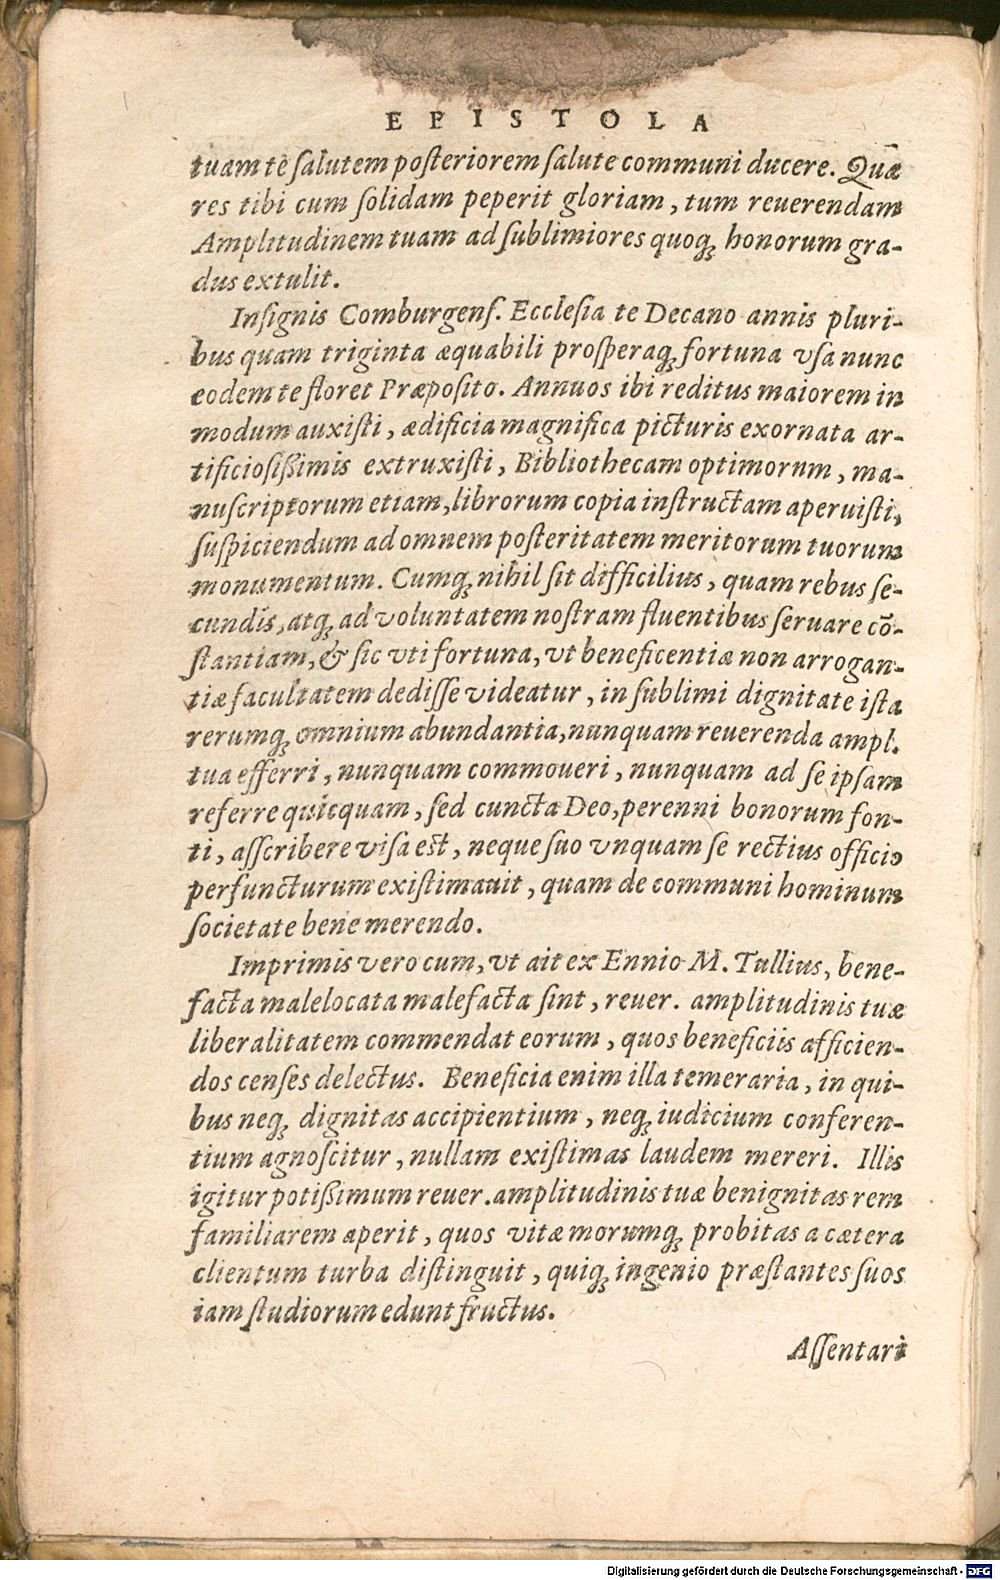 EPISTOLA
tuam te salutem posteriorem salute communi ducere. Quæ
res tibi cum solidam peperit gloriam, tum reuerendam
Amplitudinem tuam ad sublimiores quoq; honorum gra-
dus extulit.
Insignis Comburgens. Ecclesia te Decano annis pluri-
bus quam triginta æquabili prosperaq; fortuna vsa nunc
eodem te floret Præposito. Annuos ibi reditus maiorem in
modum auxisti, ædificia magnifica picturis exornata ar-
tificiosißimis extruxisti, Bibliothecam optimorum, ma-
nuscriptorum etiam, librorum copia instructam aperuisti,
suspiciendum ad omnem posteritatem meritorum tuorum
monumentum. Cumq; nihil sit difficilius, quam rebus se-
cundis, atq; ad voluntatem nostram fluentibus seruare cō-
stantiam, & sic vti fortuna, vt beneficentiæ non arrogan-
tiæ facultatem dedisse videatur, in sublimi dignitate ista
rerumq; omnium abundantia, nunquam reuerenda ampl.
tua efferri, nunquam commoueri, nunquam ad se ipsam
referre quicquam, sed cuncta Deo, perenni bonorum fon-
ti, asscribere visa est, neque suo vnquam se rectius officio
perfuncturum existimauit, quam de communi hominum
societate bene merendo.
Imprimis vero cum, vt ait ex Ennio M. Tullius, bene-
facta male locata malefacta sint, reuer. amplitudinis tuæ
liberalitatem commendat eorum, quos beneficiis afficien-
dos censes delectus. Beneficia enim illa temeraria, in qui-
bus neq; dignitas accipientium, neq; iudicium conferen-
tium agnoscitur, nullam existimas laudem mereri. Illis
igitur potißimum reuer. amplitudinis tuæ benignitas rem
familiarem aperit, quos vitæ morumq; probitas a cætera
clientum turba distinguit, quiq; ingenio præstantes suos
iam studiorum edunt fructus.
Assentari
Digitalisierung gefördert durch die Deutsche Forschungsgemeinschaft - DFG